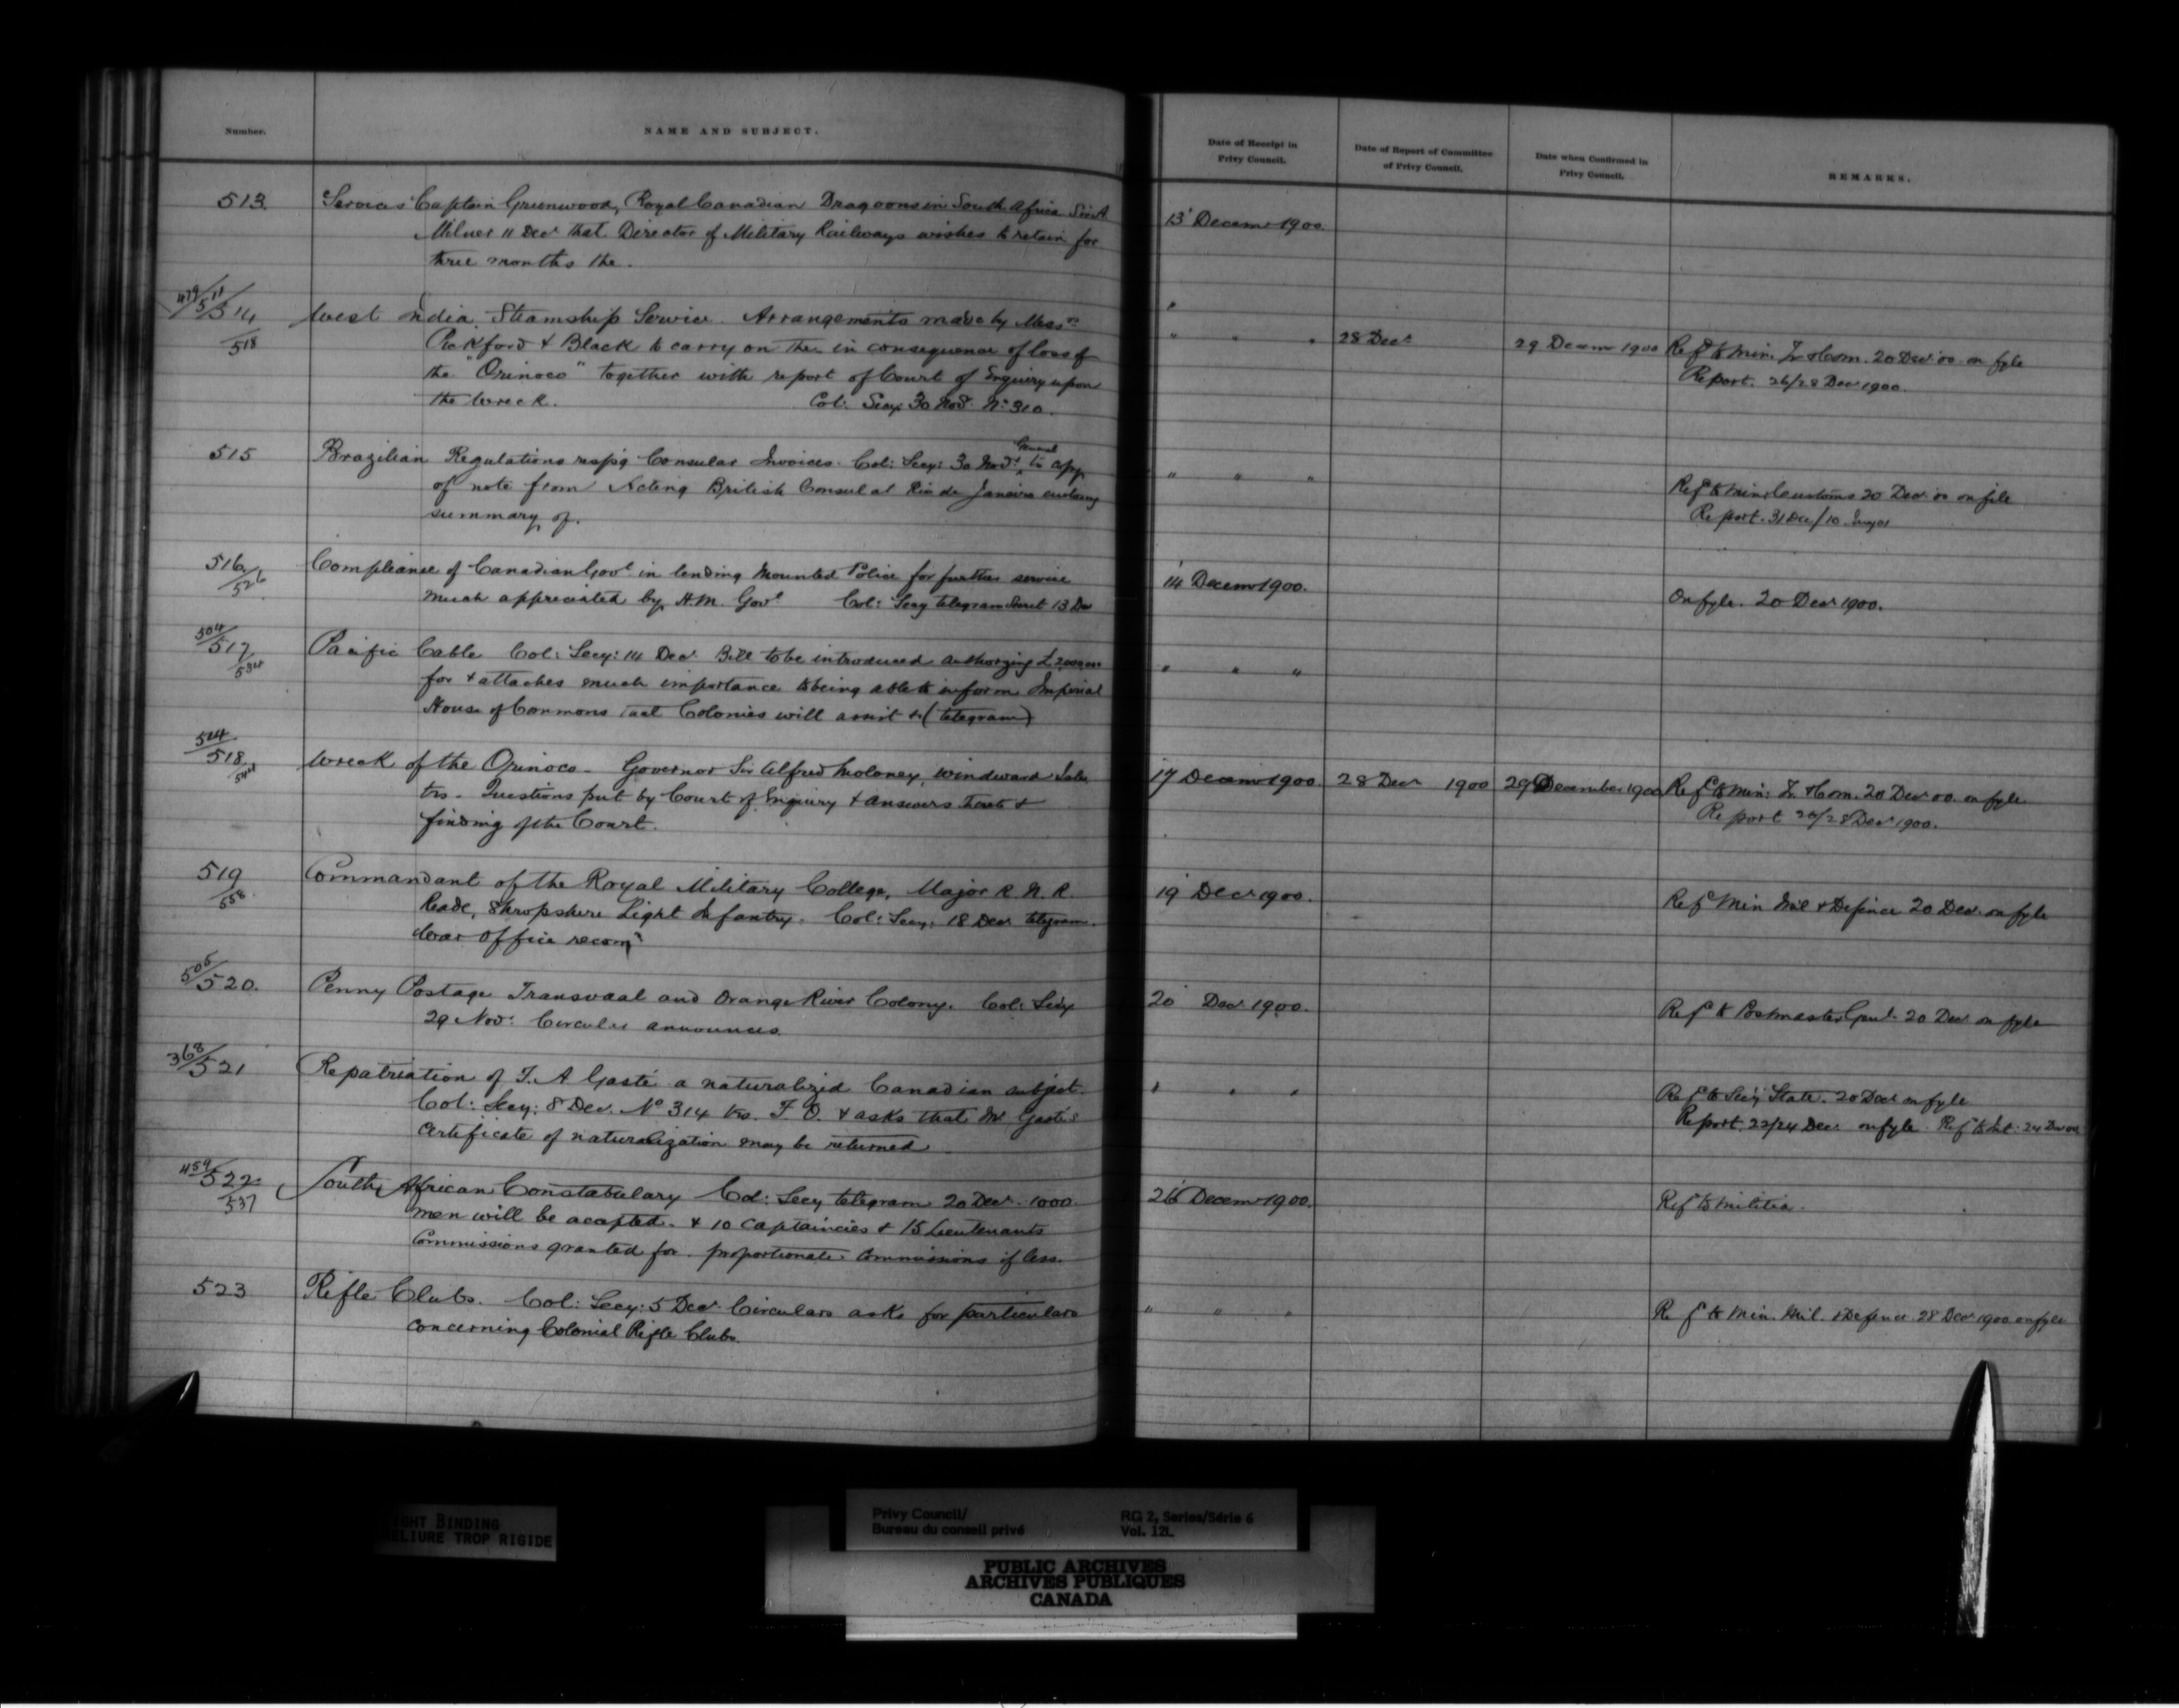 Number.
NAME AND SUBJECT.
Date of Receipt in
Privy Council.
Date of Report of Committee
of Privy Council.
Date when Confirmed in
Privy Council.
REMARKS.
513 Services Captain Greenwood, Royal Canadian Dragoons in South Africa. Sir A
Milner 11 Decr that Director of Military Railways wishes to retain for
three months the.
13 Decemr 1900.
514 West India Steamship Service. Arrangements made by Messrs
518
Pickford & Black to carry on the in consequence of loss of
the "Orinoco" together with report of Court of Enquiry upon
the wreck. Col: Secy: 30 Novr. No 310.
" " " 28 Decr 29 Decemr 1900 Refd to Min: T. & Com. 20 Decr 00 on fyle
Report. 26/28 Decr 1900.
515 Brazilian Regulations respg Consular Invoices. Col: Secy: 30 Novr
General
of note from Acting British Consul at Rio de Janeiro enclosing
summary of.
" " " Refd to Min: Customs 20 Decr 00 on file
Report. 31 Dec/10 Jany 01
516 Compliance of Canadian Govt in lending Mounted Police for further service
526
much appreciated by H.M. Govt Col: Secy telegram Secret 13 Dec
14 Decemr 1900. On fyle. 20 Decr 1900.
504
517 Pacific Cable Col: Secy: 14 Decr Bill to be introduced authorzing £2000000
534
for & attaches much importance to being able to inform Imperial
House of Commons that Colonies will assist & (telegram)
" " "
514
518 Wreck of the Orinoco - Governor Sir Alfred Moloney, Windward Isles
trs - Questions put by Court of Enquiry & answers thereto &
finding of the Court.
17 Decemr 1900. 28 Decr 1900 29 December 1900 Refd to Min: T. & Com. 20 Decr 00. on fyle
Report 26/28 Decr 1900.
519 Commandant of the Royal Military College, Major R. N. R.
558
Reade, Shropshire Light Infantry. Col: Secy: 18 Decr telegram.
War Office recomn
19 Decr 1900. Refd Min Mil & Defence 20 Decr on fyle
506
520. Penny Postage Transvaal and Orange River Colony. Col: Secy
29 Novr: Circular announces.
20 Decr 1900. Refd to Postmaster Genl. 20 Decr on fyle
368
521 Repatriation of T. A Gasté a naturalized Canadian subject.
Col: Secy: 8 Dec. No 314 trs. F O. & asks that Mr Gasté's
certificate of naturalization may be returned
" " " Refd to Secy State. 20 Decr on fyle
Report 22/24 Decr on fyle. Refd to Int: 24 Decr 00
459
522 South African Constabulary Col: Secy telegram 20 Decr. 1000
537
men will be accepted. & 10 Captaincies & 15 Lieutenants
Commissions granted for. proportionate Commissions if less.
26 Decemr 1900. Refd to Militia.
523 Rifle Clubs. Col: Secy: 5 Decr Circulars asks for particulars
concerning Colonial Rifle Clubs.
" " " Refd to Min. Mil. & Defence 28 Decr 1900 on fyle
IGHT BINDING
ELIURE TROP RIGIDE
Privy Council/
Bureau du conseil privé
RG 2, Series/Série 6
Vol. 121.
PUBLIC ARCHIVES
ARCHIVES PUBLIQUES
CANADA